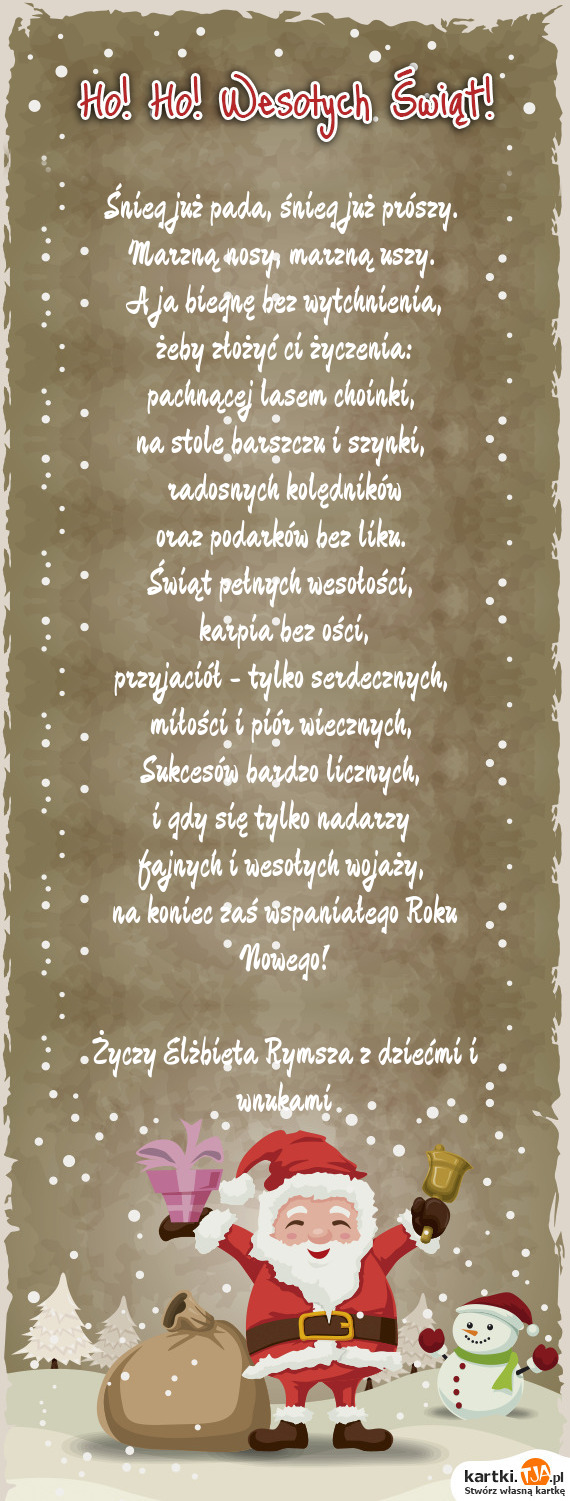 Ho! Ho! Wesołych Świąt!
Śnieg już pada, śnieg już prószy.
Marzną nosy, marzną uszy.
A ja biegnę bez wytchnienia,
żeby złożyć ci życzenia:
pachnącej lasem choinki,
na stole barszczu i szynki,
radosnych kolędników
oraz podarków bez liku.
Świąt pełnych wesołości,
karpia bez ości,
przyjaciół - tylko serdecznych,
miłości i piór wiecznych,
Sukcesów bardzo licznych,
i gdy się tylko nadarzy
fajnych i wesołych wojaży,
na koniec zaś wspaniałego Roku
Nowego!
Życzy Elżbieta Rymsza z dziećmi i
wnukami
kartki.TJA.pl
Stwórz własną kartkę